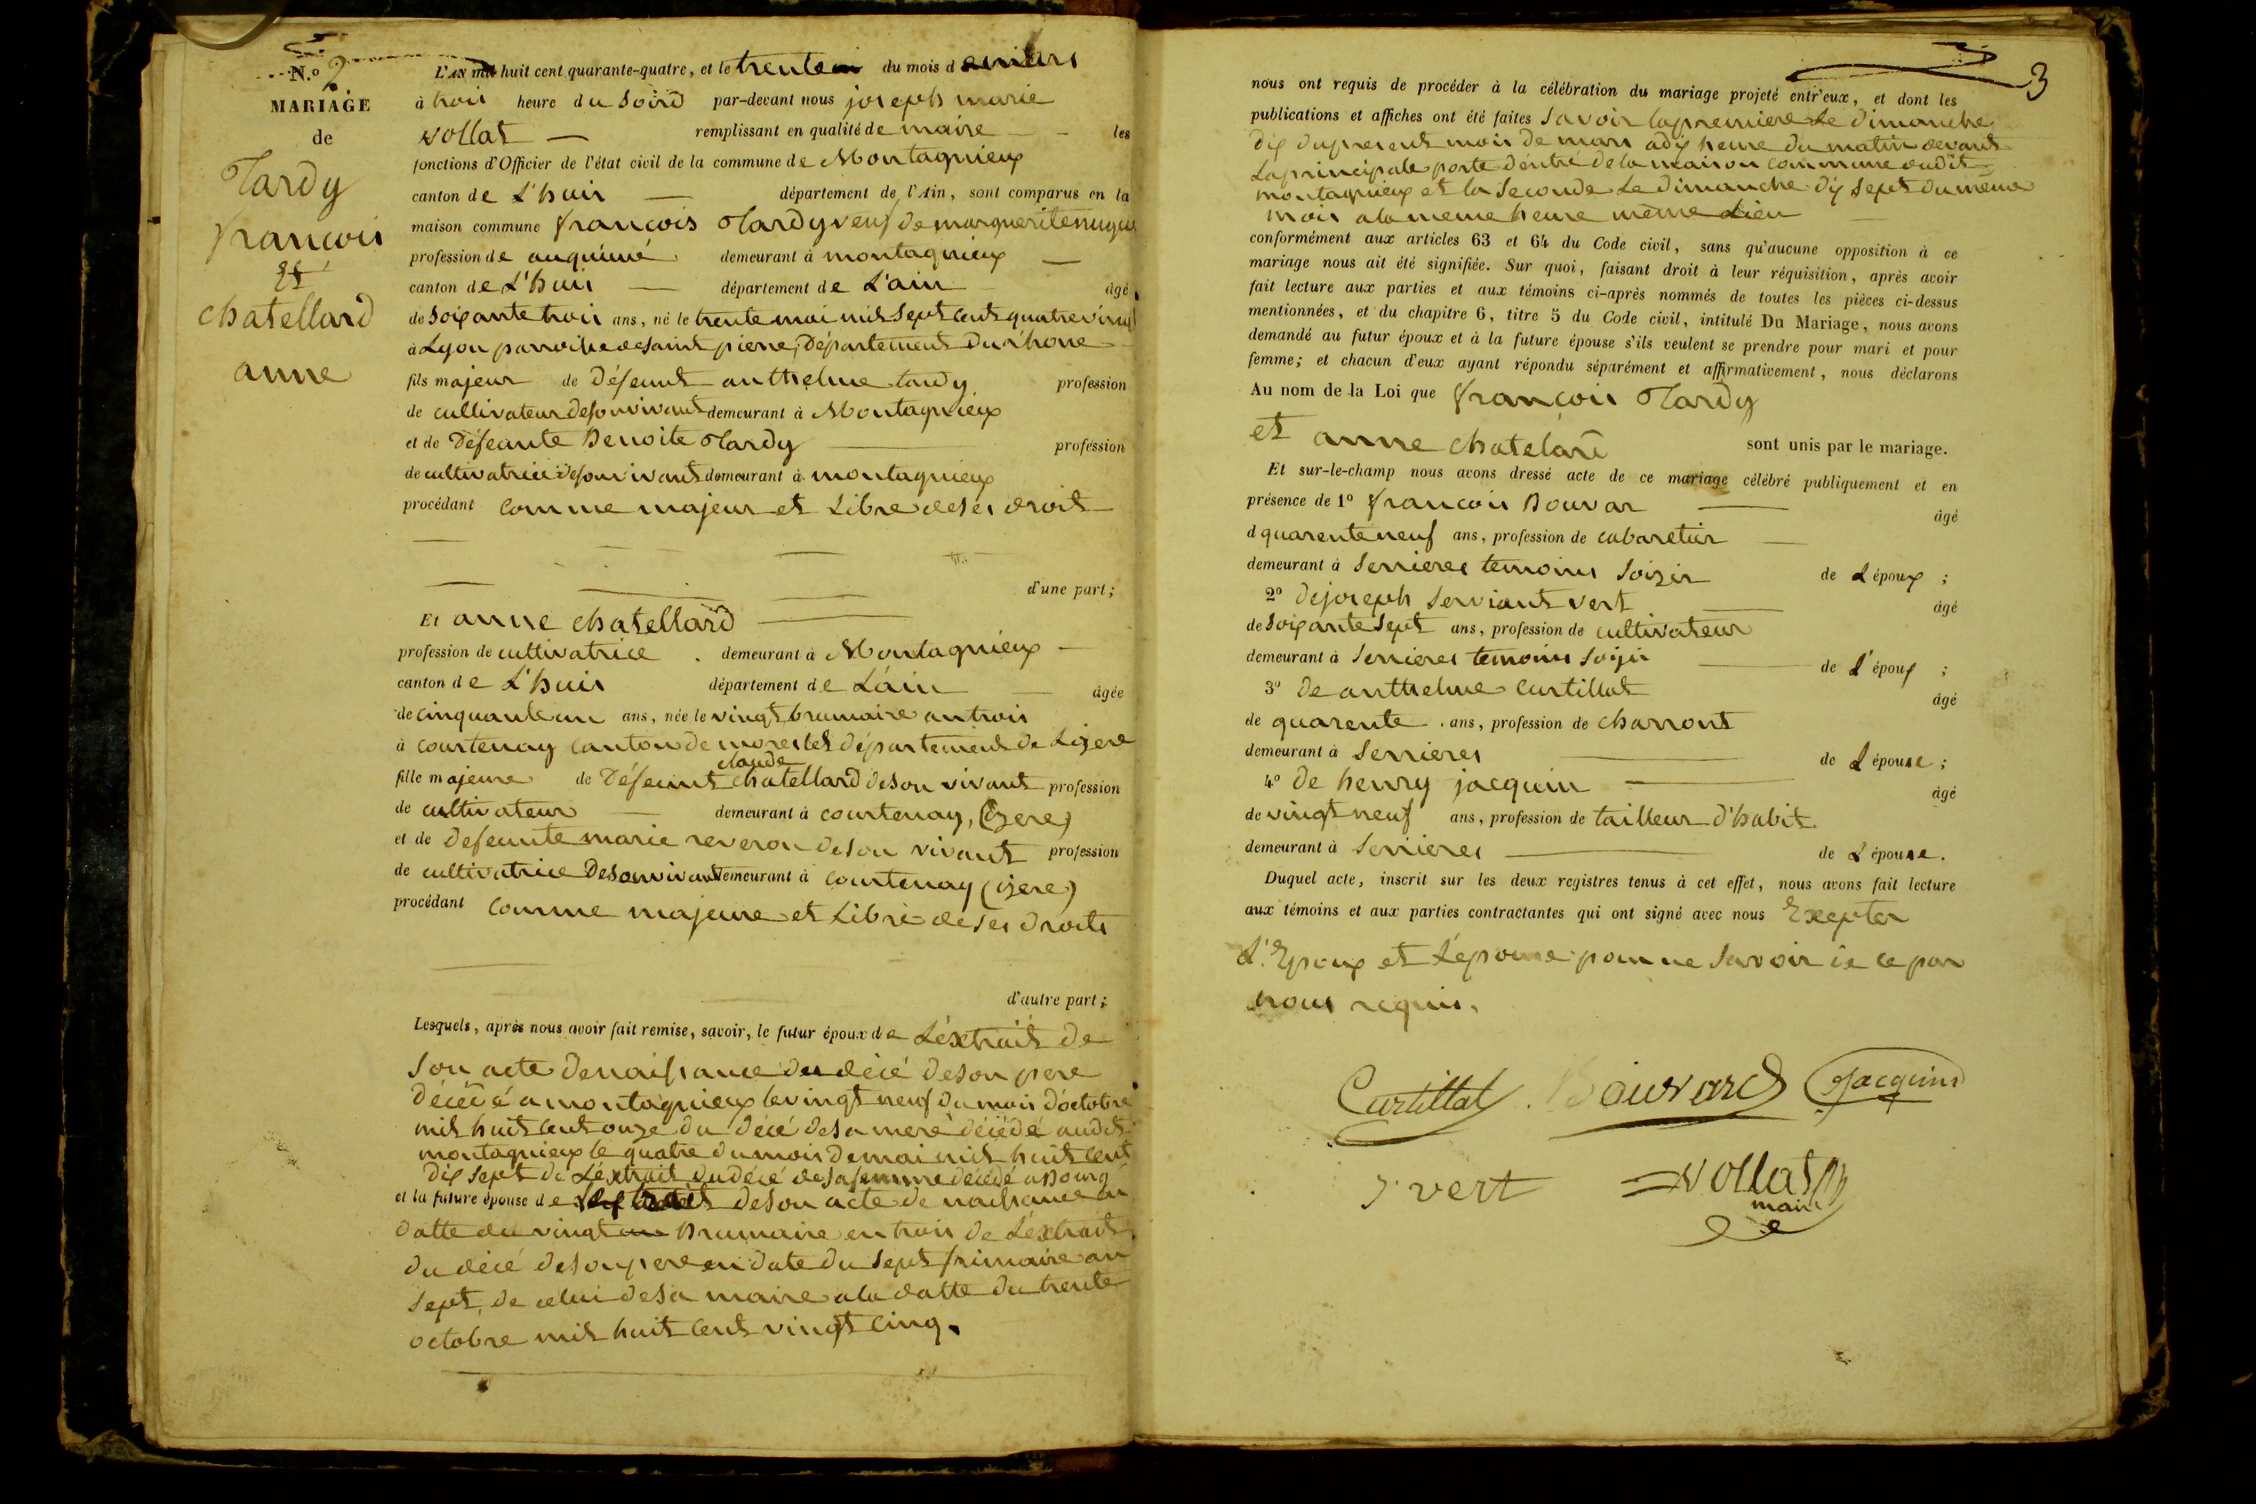 N.o 2
MARIAGE
de
Tardy
françois
Et
chatellard
anne
L'AN mil huit cent quarante-quatre, et le trente du mois d
à trois heure du soird par-devant nous joseph marie
vollat — remplissant en qualité de maire — — les
fonctions d'Officier de l'état civil de la commune de Montagnieux
canton de L'huis — département de l'Ain, sont comparus en la
maison commune françois Tardy veuf de marguerite
profession de demeurant à montagnieux —
canton de L'huis — département de L'ain âgé
de soixante trois ans, né le trente mai mil sept cent quatre vingt
à Lyon parroiche de saint pierre, Département Du rhone
fils majeur de Défeunt anthelme tardy profession
de cultivateur de son vivant demeurant à Montagnieux
et de Défeante Benoite Tardy — profession
de cultivatrice de son vivant demeurant à montagnieux
procédant comme majeur et Libre de ses droit
d'une part;
Et anne chatellard —
profession de cultivatrice . demeurant à Montagnieux —
canton de L'huis département de L'ain — âgée
de cinquante un ans, née le vingt brumaire an trois
à courtenay canton de morestel département de Lizere
claude
fille majeure de Défeunt chatellard de son vivant profession
de cultivateur — demeurant à courtenay, (izere)
et de defeunte marie reveron de son vivant profession
de cultivatrice De son vivant demeurant à courtenay (izere)
procédant comme majeure et Libre de ses droits
d'autre part;
Lesquels, après nous avoir fait remise, savoir, le futur époux de L'éxtrait de
son acte de naissance du décé de son pere
décédé a montagnieux le vingt neuf du mois d'octobre
mil huit cent onze du décé de sa mere décédé audit
montagnieux le quatre du mois de mai mil huit cent
dix sept de L'éxtrait du décé de sa femme décédé a Bourg
et la future épouse de de son acte de naissance en
datte du vingt Brumaire en trois de L'éxtrait
du décé de son pere en date du sept frimaire an
sept, de celui de sa maire a la datte du trente
octobre mil huit cent vingt cinq.
3
nous ont requis de procéder à la célébration du mariage projeté entr'eux, et dont les
publications et affiches ont été faites savoir la premiere Le dimanche
dix du present mois de mars a dix heure du matin devant
La principale porte d'entré de la maison commune dudit
montagnieux et la seconde Le dimanche dix sept du meme
mois a la meme heure même Lieu —
conformément aux articles 63 et 64 du Code civil, sans qu'aucune opposition à ce
mariage nous ait été signifiée. Sur quoi, faisant droit à leur réquisition, après avoir
fait lecture aux parties et aux témoins ci-après nommés de toutes les pièces ci-dessus
mentionnées, et du chapitre 6, titre 5 du Code civil, intitulé Du Mariage, nous avons
demandé au futur époux et à la future épouse s'ils veulent se prendre pour mari et pour
femme; et chacun d'eux ayant répondu séparément et affirmativement, nous déclarons
Au nom de la Loi que françois Tardy
et anne chatelard sont unis par le mariage.
Et sur-le-champ nous avons dressé acte de ce mariage célébré publiquement et en
présence de 1o francois Bouvar — âgé
d quarente neuf ans, profession de cabaretier —
demeurant à Serrieres temoins de L'époux ;
2o de joseph Serviant vert — âgé
de soixante sept ans, profession de cultivateur
demeurant à Serrieres temoins — de L'époux ;
3o de anthelme Curtillat âgé
de quarente . ans, profession de charront
demeurant à Serrieres — de L'épouse ;
4o de henry jacquin — âgé
de vingt neuf ans, profession de tailleur d'habit.
demeurant à Serrieres — de L'épouse.
Duquel acte, inscrit sur les deux registres tenus à cet effet, nous avons fait lecture
aux témoins et aux parties contractantes qui ont signé avec nous Excepter
L'Epoux et L'épouse pour ne savoir de ce par
nous requis.
Curtillat Bouvard Jacquin
J vert vollat
maire